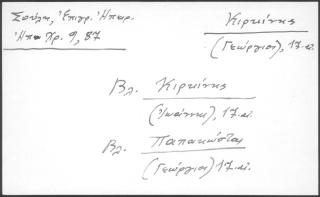 Σούλη, Ἐπιγρ. Ἠπειρ.
Ἠπ. Χρ. 9, 87
Κιρκίνης
(Γεώργιος), 17 αἰ.
Βλ. Κιρκίνης
(Ἰωάννης), 17 αἰ.
Βλ. Παπακώστας
(Γεώργιος) 17 αἰ.